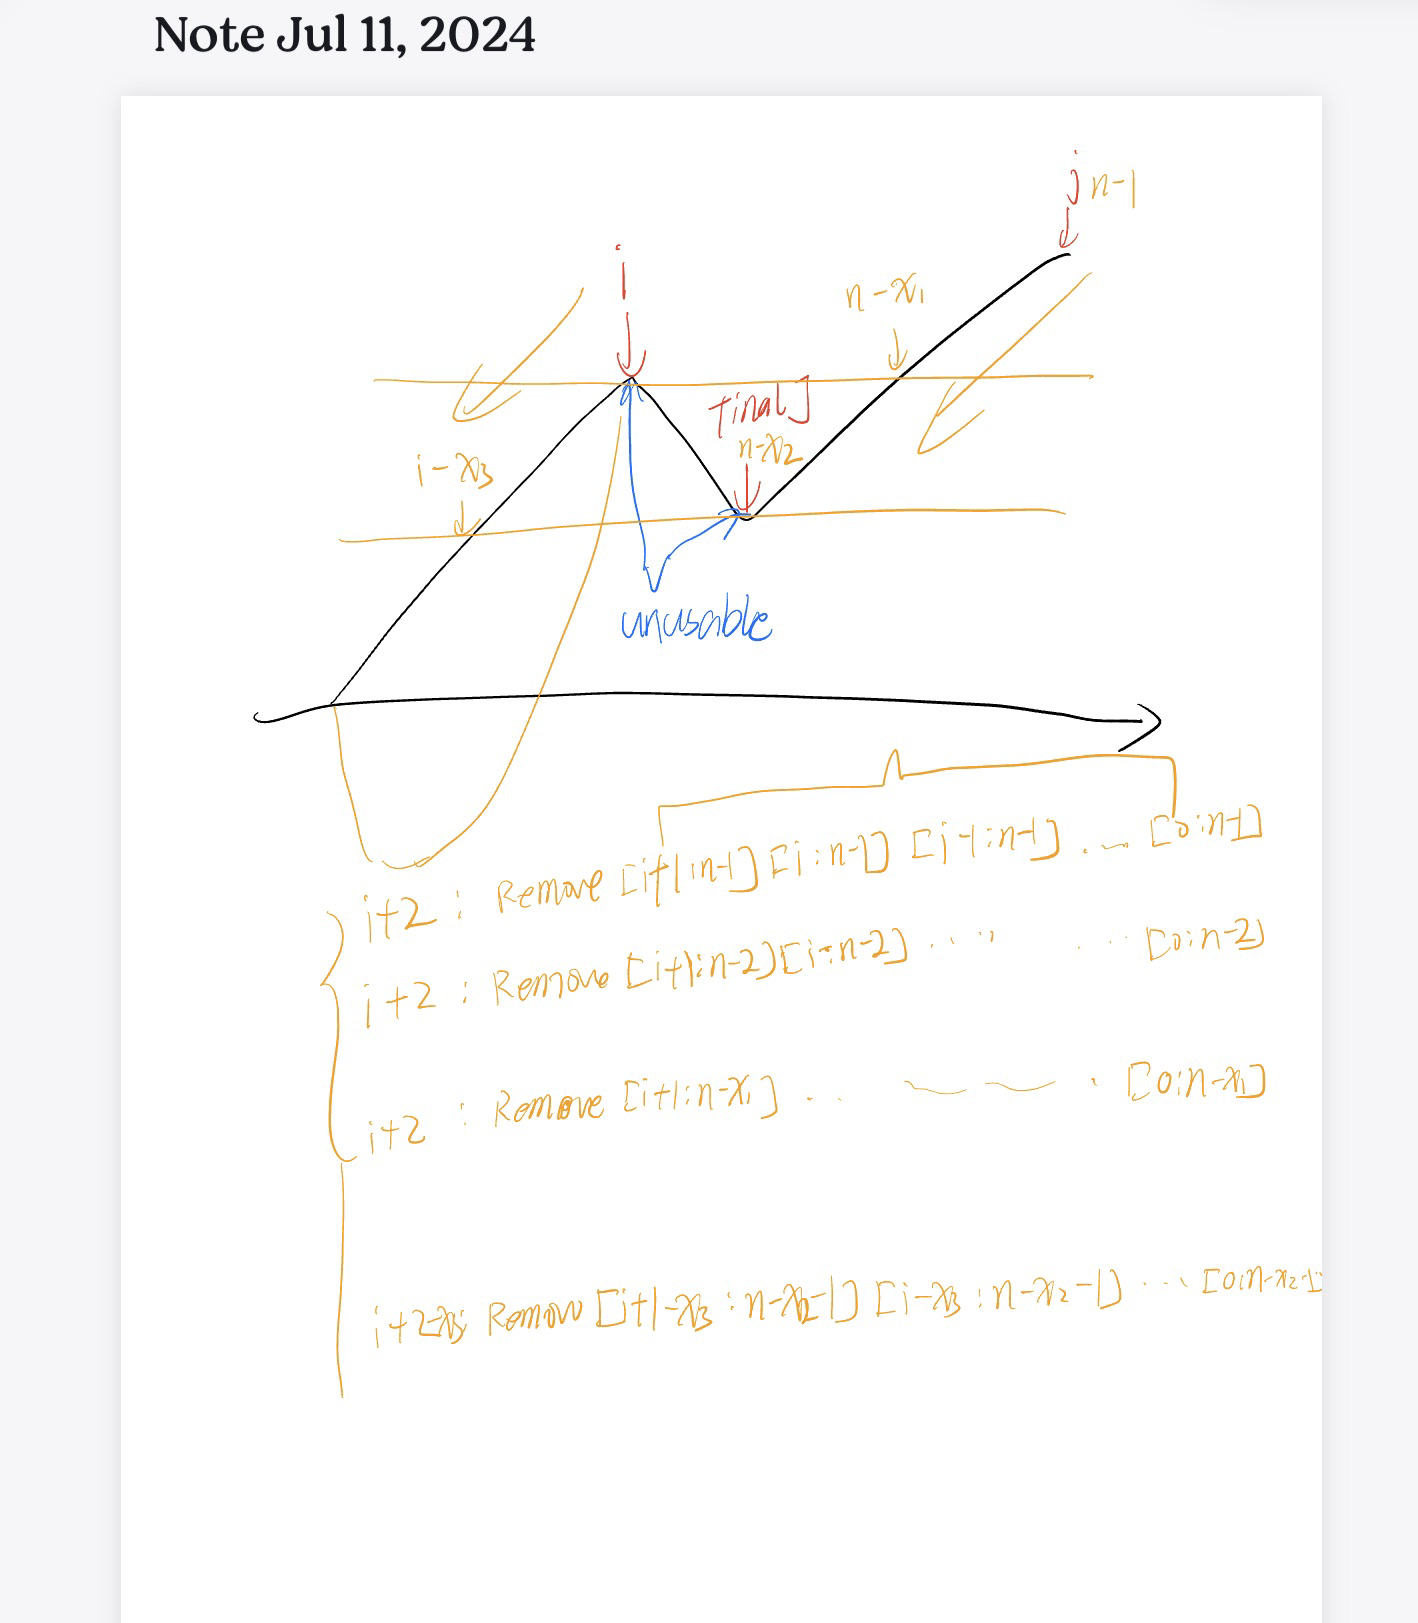 Note Jul 11, 2024
j n-1
i
n-x₁
final j
n-x₂
i-x₃
unusable
i+2 : Remove [i+1:n-1] [i:n-1] [i-1:n-1] ... [0:n-1]
i+2 : Remove [i+1:n-2] [i:n-2] .... ... [0:n-2]
i+2 : Remove [i+1:n-x₁] .. . [0:n-x₁]
i+2-x₃: Remove [i+1-x₃:n-x₂-1] [i-x₃:n-x₂-1] ... [0:n-x₂-1]